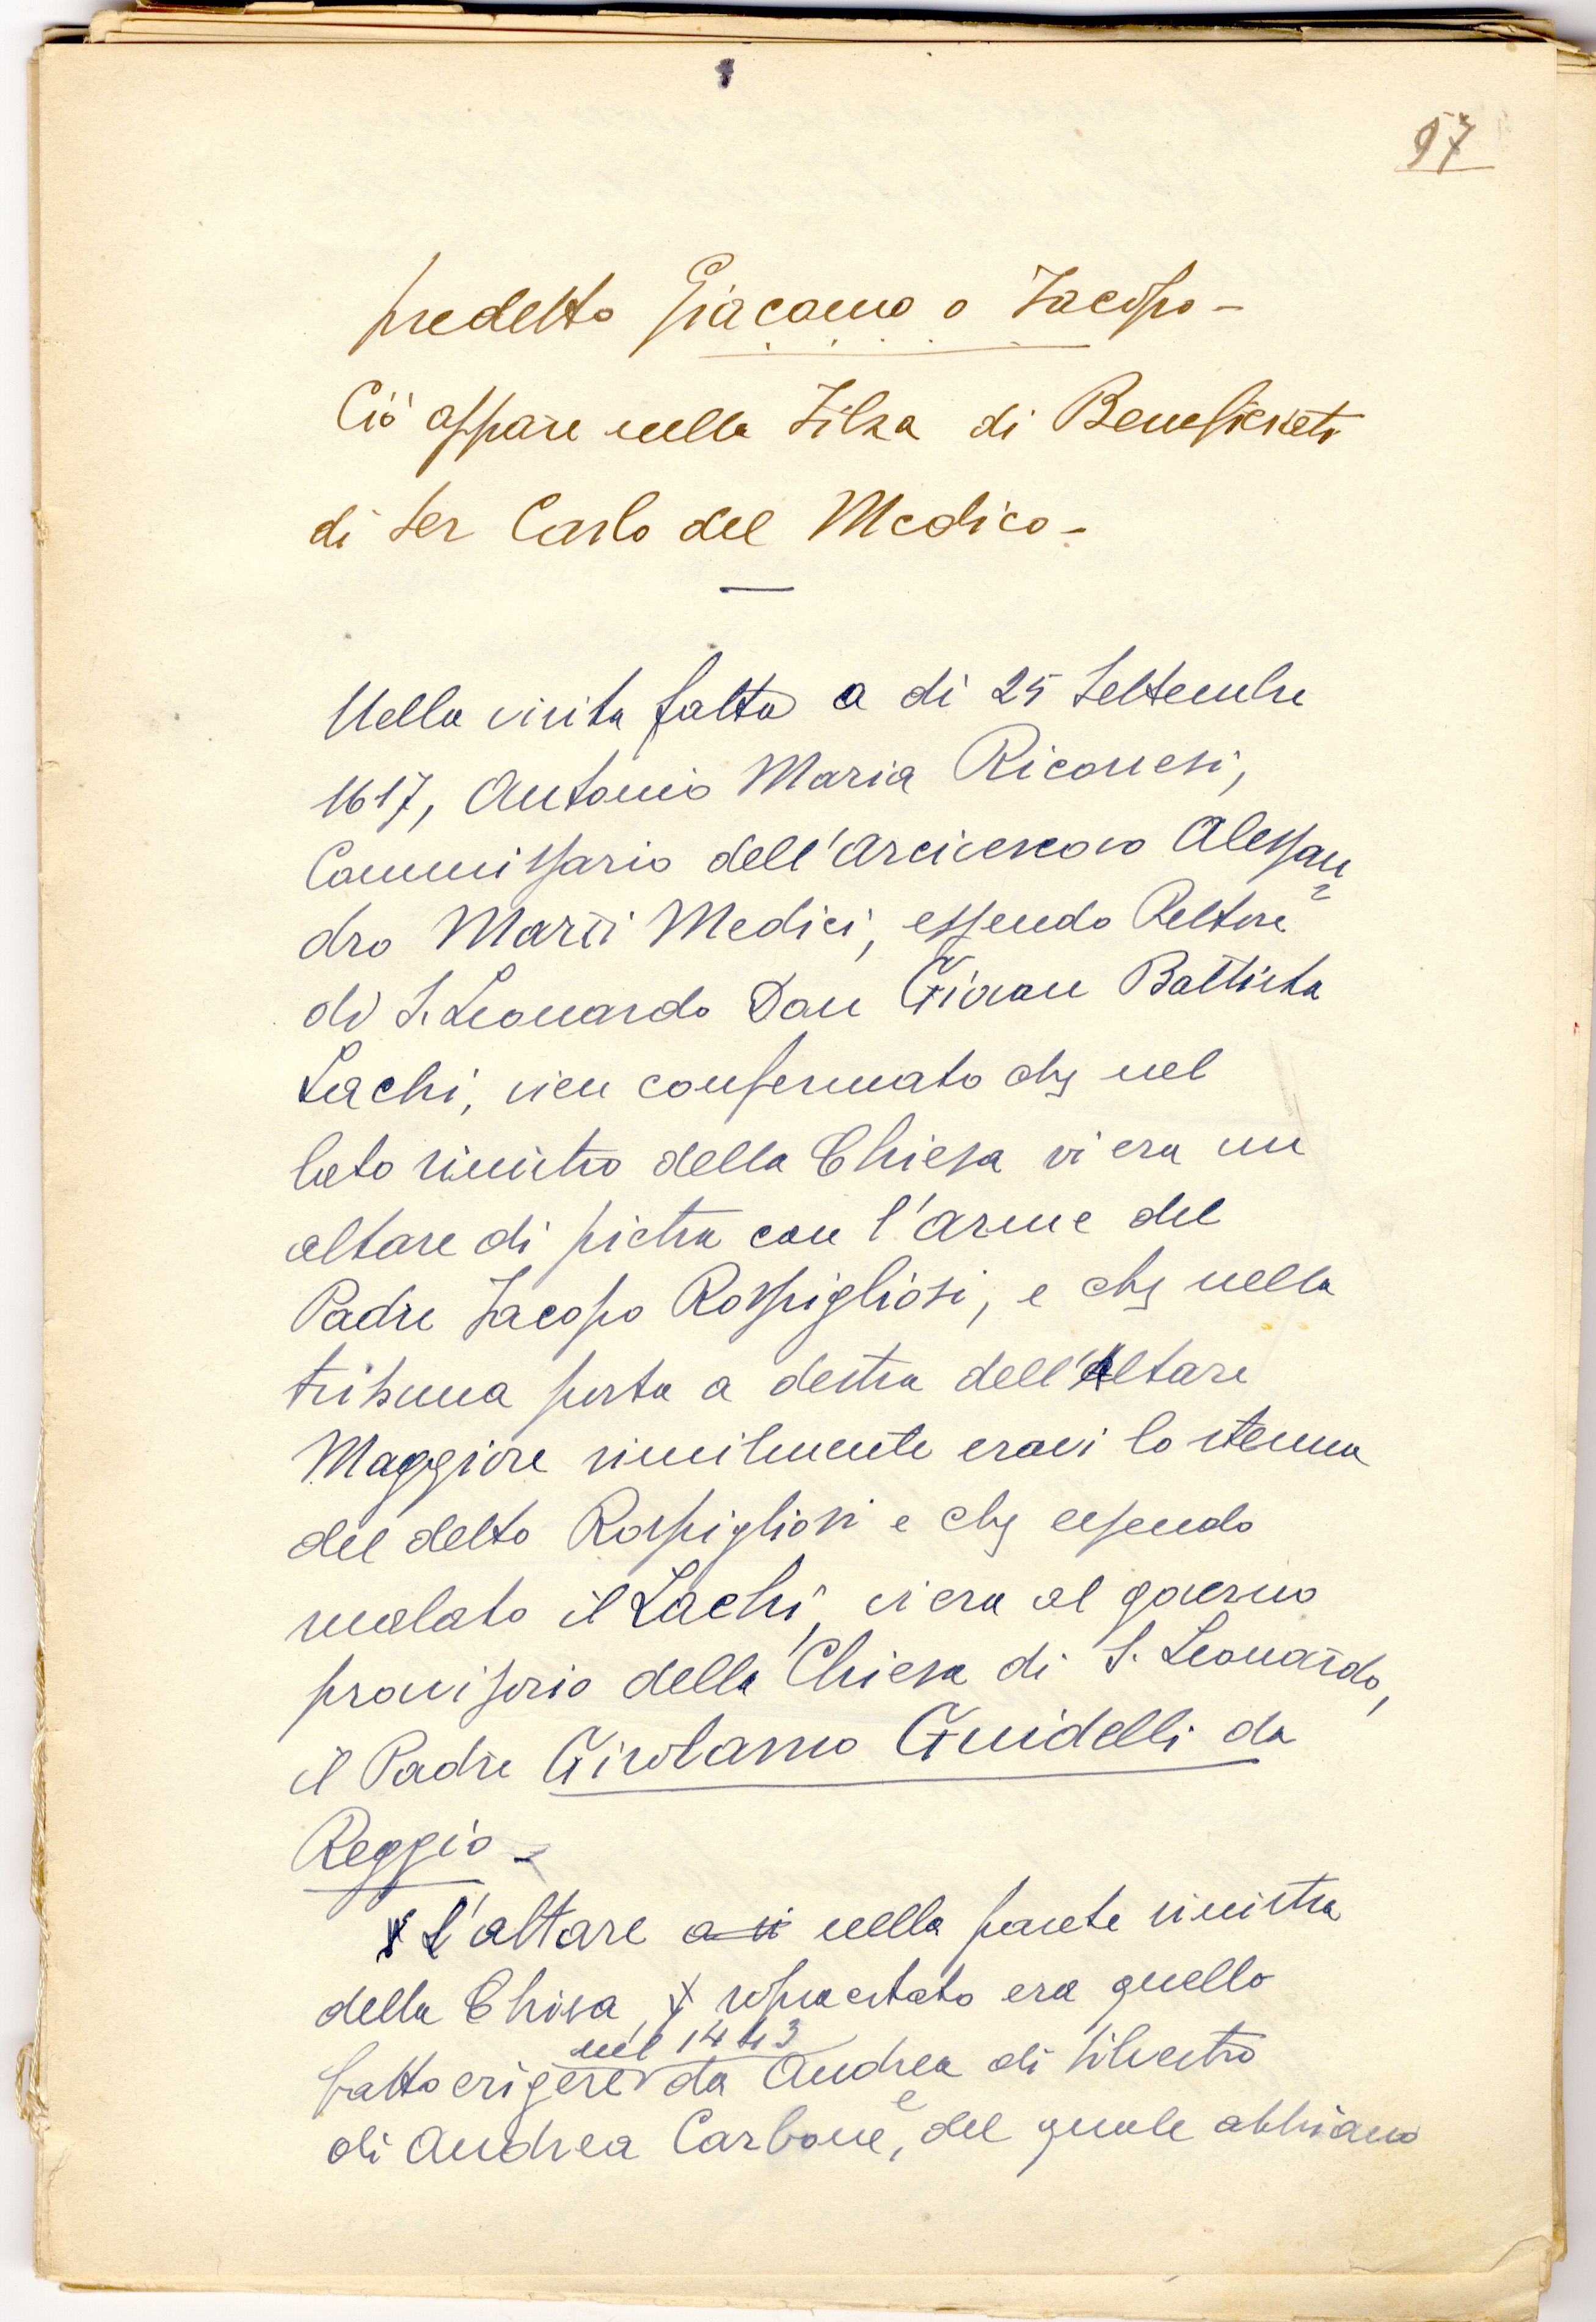 97
predetto Giacomo o Jacopo -
Ciò appare nella Filza di Beneficiati
di Ser Carlo del Medico -
Nella visita fatta a dì 25 Settembre
1617, Antonio Maria Riconesi,
Commissario dell'Arcivescovo Alessan=
dro Marzi Medici, essendo Rettore
di S. Leonardo Don Giovan Battista
Lachi, vien confermato che nel
lato sinistro della Chiesa vi era un
altare di pietra con l'arme del
Padre Jacopo Rospigliosi, e che nella
tribuna posta a destra dell'Altare
Maggiore similmente eravi lo stemma
del detto Rospigliosi e che essendo
malato il Lachi, vi era al governo
provvisorio della Chiesa di S. Leonardo,
il Padre Girolamo Guidelli da
Reggio -
L'altare a si nella parete sinistra
della Chisa, sopracitato era quello
nel 1443
fatto erigere da Andrea di Silvestro
di Andrea Carbone, e del quale abbiamo